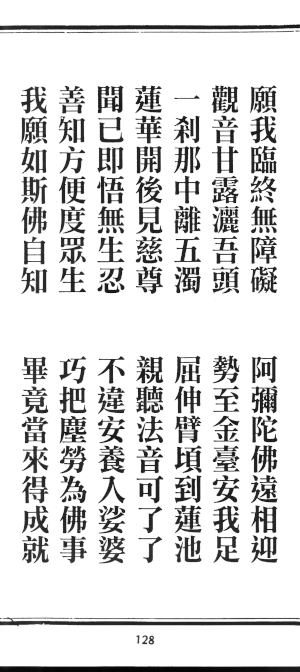 願我臨終無障礙　阿彌陀佛遠相迎
觀音甘露灑吾頭　勢至金臺安我足
一剎那中離五濁　屈伸臂頃到蓮池
蓮華開後見慈尊　親聽法音可了了
聞已即悟無生忍　不違安養入娑婆
善知方便度眾生　巧把塵勞為佛事
我願如斯佛自知　畢竟當來得成就
128